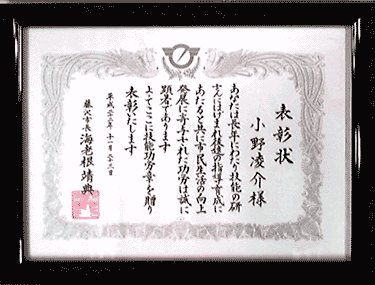 表彰状
小野凌介様
あなたは長年にわたり技能の研
さんにはげまれ後進の指導育成に
あたると共に市民生活の向上
発展に寄与された功労は誠に
顕著であります
よってここに技能功労章を贈り
表彰いたします
平成二十五年十一月二十三日
藤沢市長 海老根靖典